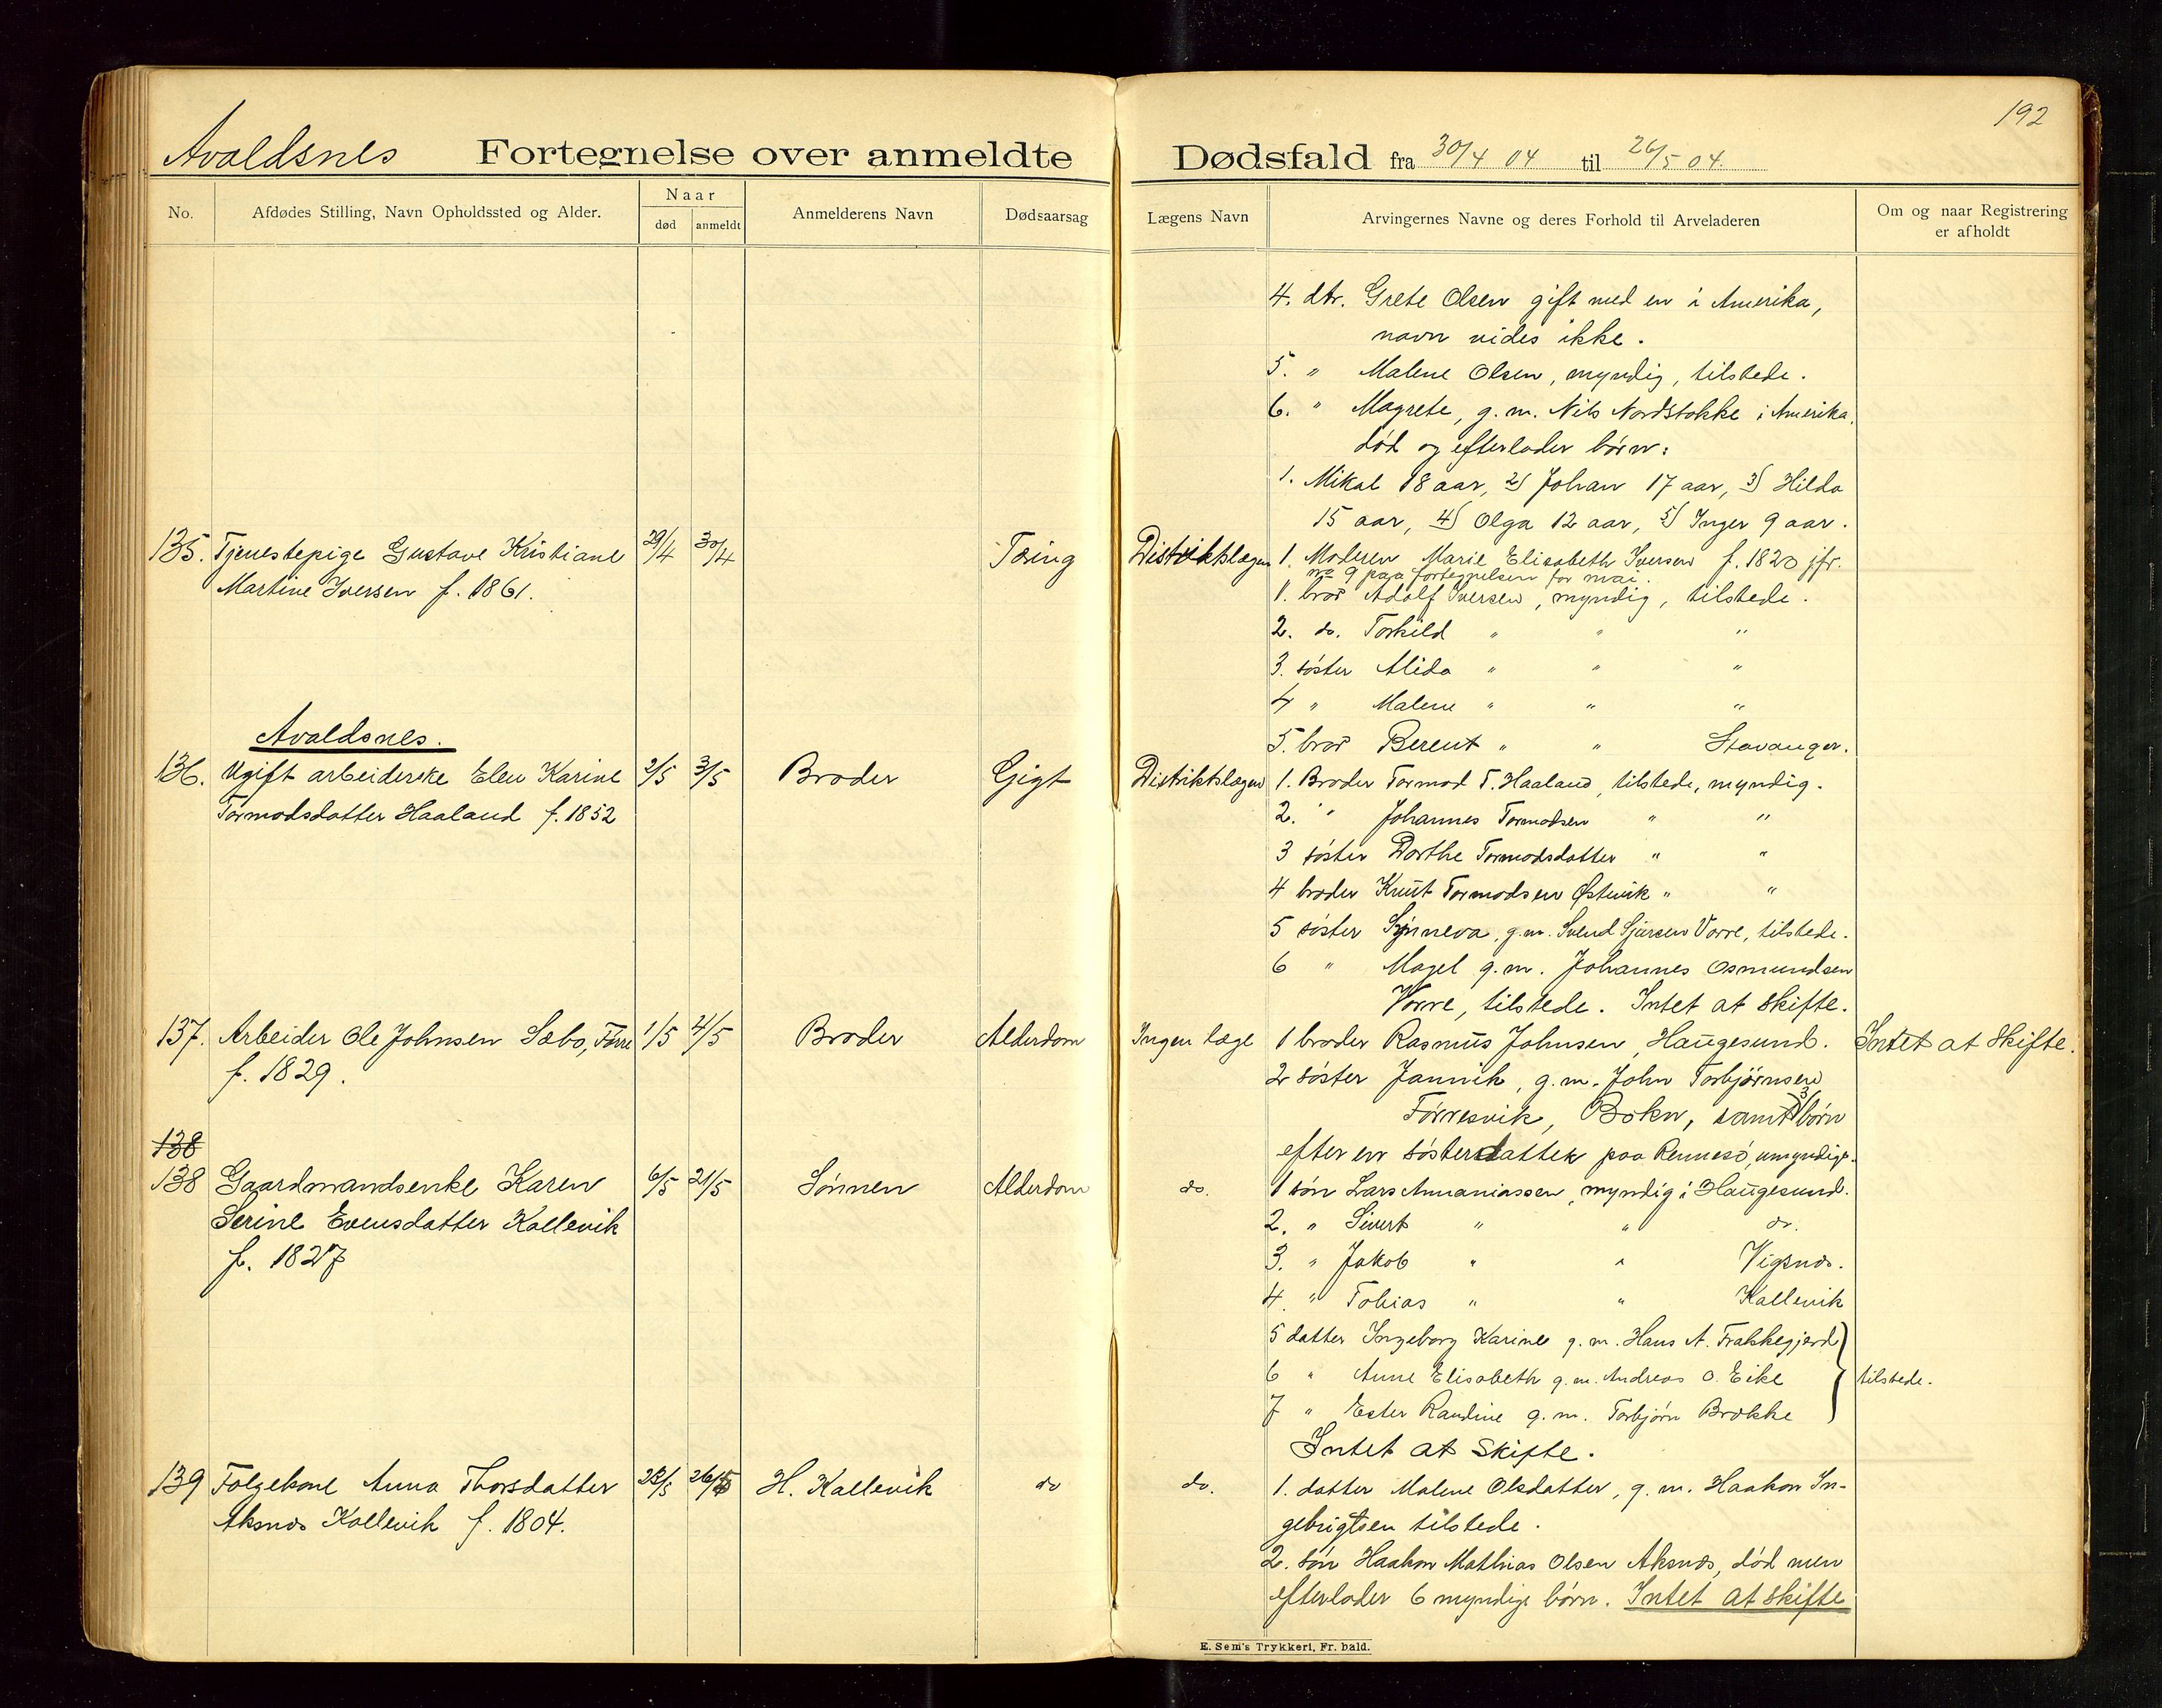 192
Avaldsnes Fortegnelse over anmeldte Dødsfald fra 30/4 04 til 26/5 04.
No.
Afdødes Stilling, Navn Opholdssted og Alder.
Naar
død
anmeldt
Anmelderens Navn
Dødsaarsag
Lægens Navn
Arvingernes Navne og deres Forhold til Arveladeren
Om og naar Registrering
er afholdt
4. dtr. Grete Olsen gift med en i Amerika,
navn vides ikke.
5. " Malene Olsen, myndig, tilstede.
6. " Magrete, g.m. Nils Nordstokke i Amerika,
død og efterlader børn:
1. Mikal 18 aar, 2) Johan 17 aar, 3) Hilda
15 aar, 4) Olga 12 aar, 5) Inger 9 aar.
135. Tjenestepige Gustave Kristiane 29/4 30/4 Tæring Distriktslægen 1. Moderen Marie Elisabeth Iversen f. 1820 jfr.
no 9 paa fortegnelsen for mai.
Martine Iversen f. 1861. 1. bror Adolf Iversen, myndig, tilstede.
2. do. Torkild " " "
3. søster Alida " " "
4 " Malene " " "
Avaldsnes.
5. bror Berent " " Stavanger.
136. Ugift arbeiderske Elen Karine 2/5 3/5 Broder Gigt Distriktslægen 1. Broder Tormod T. Haaland, tilstede, myndig.
Tormodsdatter Haaland f. 1852 2. " Johannes Tormodsen " "
3 søster Dorthe Tormodsdatter " "
4 broder Knut Tormodsen Østvik " "
5 søster Synneva, g.m. Svend Sjursen Vorre, tilstede.
6 " Magel g.m. Johannes Osmundsen
Vorre, tilstede. Intet at skifte.
137. Arbeider Ole Johnsen Sæbø, Førre 1/5 4/5 Broder Alderdom Ingen læge 1 broder Rasmus Johnsen, Haugesund. Intet at skifte.
f. 1829. 2 søster Jannik, g.m. John Torbjørnsen
Førresvik, Bokn, samt 3 børn
138
efter en søsterdatter paa Rennesø, umyndige.
138 Gaardmandsenke Karen 6/5 21/5 Sønnen Alderdom do. 1 søn Lars Annaniassen, myndig i Haugesund.
Serine Evensdatter Kallevik 2. " Sivert " " do.
f. 1827 3. " Jakob " " Vigsnæs.
4. " Tobias " " Kallevik
5 datter Ingeborg Karine g.m. Hans A. Frakkegjerd
6 " Anne Elisabeth g.m. Andreas O. Eike tilstede.
7 " Ester Randine g.m. Torbjørn Brække
Intet at skifte.
139 Følgekone Anna Thorsdatter 26/5 H. Kallevik do do. 1. datter Malene Olsdatter, g.m. Haakon In-
Aksnæs Kallevik f. 1804. gebrigtsen tilstede.
2. søn Haakon Mathias Olsen Aksnæs, død men
efterlader 6 myndige børn. Intet at skifte
E. Sem's Trykkeri, Fr. hald.